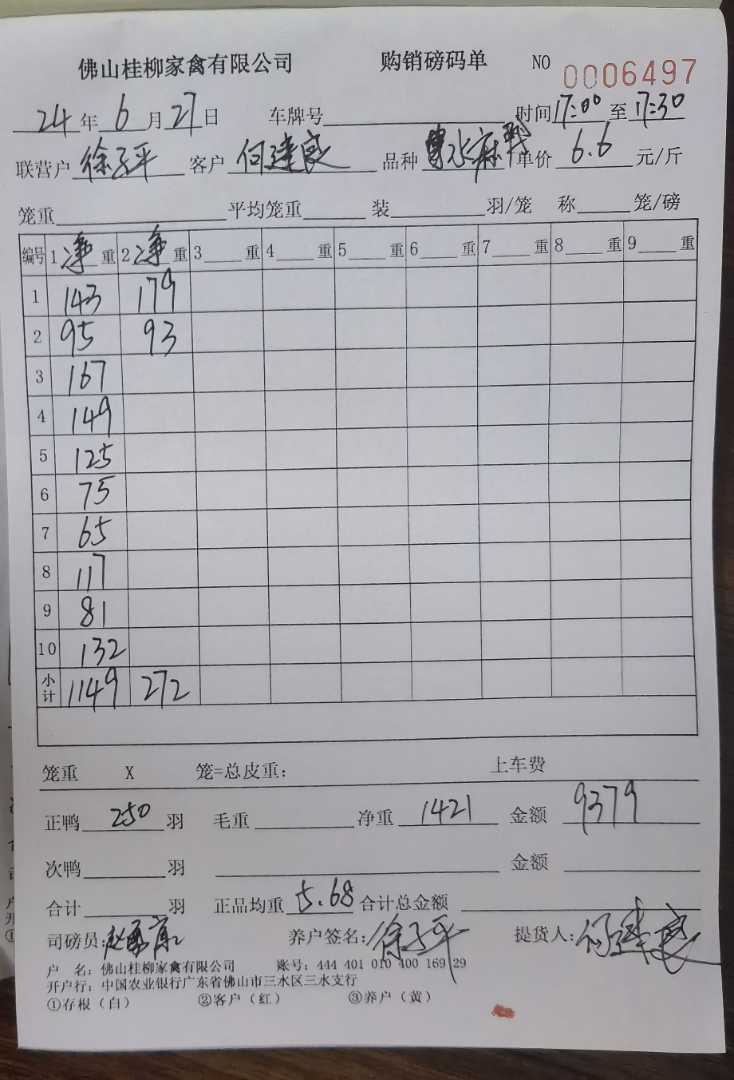 佛山桂柳家禽有限公司 购销磅码单 NO 0006497
24年6月27日 车牌号 时间17:00至17:30
联营户 徐子平 客户 何建良 品种 水麻鸭 单价 6.6 元/斤
笼重 平均笼重 装 羽/笼 称 笼/磅
编号 1净重 2净重 3重 4重 5重 6重 7重 8重 9重
1 143 179
2 95 93
3 167
4 149
5 125
6 75
7 65
8 117
9 81
10 132
小计 1149 272
笼重 X 笼=总皮重: 上车费
正鸭 250 羽 毛重 净重 1421 金额 9379
次鸭 羽 金额
合计 羽 正品均重 5.68 合计总金额
司磅员: 养户签名: 徐子平 提货人: 何建良
户 名: 佛山桂柳家禽有限公司 账号: 444 401 010 400 169 29
开户行: 中国农业银行广东省佛山市三水区三水支行
①存根(白) ②客户(红) ③养户(黄)